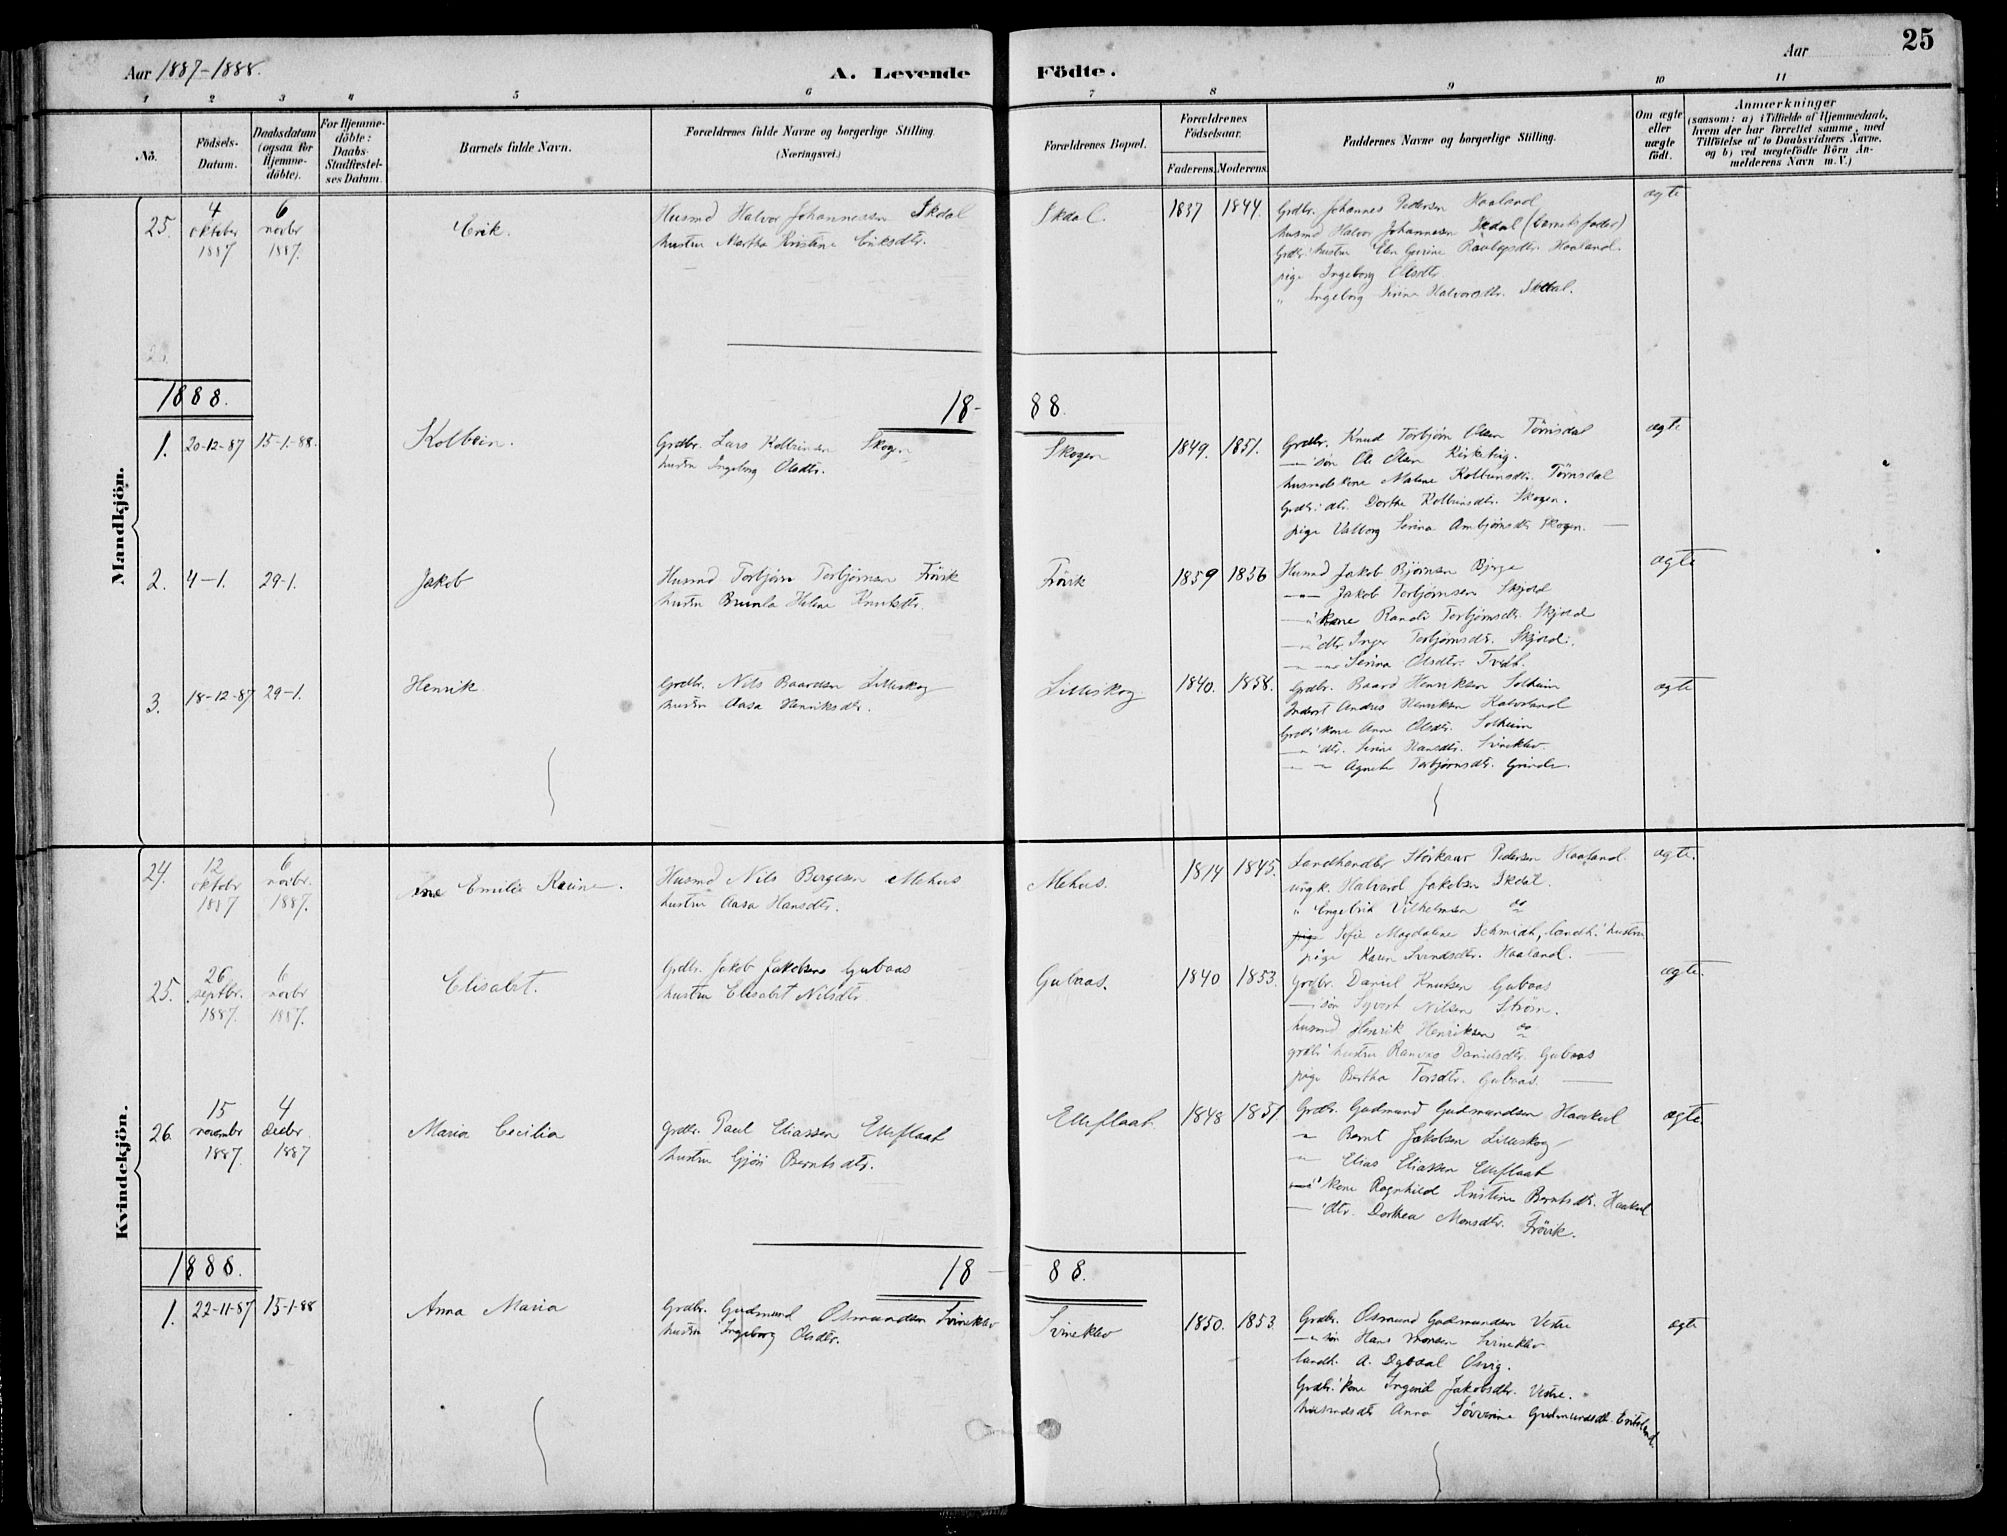 Aar 1887-1888.
A. Levende
Födte.
Aar
25
1 2 3 4 5 6 7 8 9 10 11
No.
Födsels-Datum.
Daabsdatum (ogsaa for Hjemme-döbte).
For Hjemme-döbte: Daabs-Stadfæstel-ses Datum.
Barnets fulde Navn.
Forældrenes fulde Navne og borgerlige Stilling.
(Næringsvei.)
Forældrenes Bopæl.
Forældrenes Födselsaar.
Faderens. Moderens.
Faddernes Navne og borgerlige Stilling.
Om ægte eller uægte födt.
Anmærkninger
(saasom: a) i Tilfælde af Hjemmedaab,
hvem der har forrettet samme, med
Tilföielse af to Daabsvidners Navne,
og b) ved uægtefödte Börn An-
melderens Navn m. V.)
Mandkjön.
25. 4 oktober 1887 6 novbr 1887. Erik.
Husmd Halvor Johannessen Skdal
hustru Martha Kristine Eriksdtr.
Skdal. 1837 1844.
Grdbr. Johannes Pedersen Haaland
husmd Halvor Johannesen Skdal (barnets fader)
Grdbr' hustru Elen Gurine Haaland.
pige Ingeborg Olsdtr.
" Ingeborg Serine Halvorsdtr. Skdal.
ægte
1888.
18-88.
1. 20-12-87 15-1-88. Kolbein.
Grdbr. Lars Kolbeinsen Skogen
hustru Ingeborg Olsdtr.
Skogen 1849. 1851.
Grdbr. Knud Torbjørn Olsen Tørrisdal
—" søn Ole Olsen Kirkebig.
husmdskone Malene Kolbeinsdtr. Tørrisdal
Grdbr' dtr. Dorthe Kolbeinsdtr. Skogen.
pige Valborg Serina Arnbjørnsdtr Skogen.
ægte
2. 4-1. 29-1. Jakob
Husmd Torbjørn Torbjørnsen Frövik
hustru Helene Knutsdtr.
Frövik 1859 1856
Husmd Jakob Bjørnsen
—"— Jakob Torbjørnsen Skjold
—" kone Randi Torbjørnsdtr. Skjold
—" dtr. Inger Torbjørnsdtr. Skjold.
—"— Serina Olsdtr. Tvedt.
ægte
3. 18-12-87 29-1. Henrik
Grdbr. Nils Baardsen Lilleskog
hustru Aasa Henriksdtr.
Lilleskog 1840. 1858.
Grdbr. Baard Henriksen Solheim
Inderst Andres Henriksen
Grdbr' kone Anne Olsdtr. Solheim
—" dtr. Serine Hansdtr. Svineklev.
—"— Agnete Torbjørnsdtr. Grinde.
ægte
Kvindekjön.
24. 12 oktobr 1887 6 novbr. 1887. Ane Emilie Rasine.
Husmd Nils Børgesen Mehus
hustru Aasa Hansdtr.
Mehus. 1814 1845.
Landhandler Pedersen Haaland.
ungk. Halvard Jakobsen Skdal.
" Engelbrik Vilhelmsen do
pige Sofie Magdalene Schmidt, landh.' hustru
pige Karen Svendsdtr. Haaland.
ægte.
25. 26 septbr. 1887. 6 novbr 1887. Elisabet.
Grdbr. Jakob Jakobsen Gubaas
hustru Elisabet Nilsdtr.
Gubaas. 1840 1853.
Grdbr. Daniel Knutsen Gubaas
—" søn Syvert Nilsen Strøm.
husmd Henrik Henriksen do
grdbr' hustru Danielsdtr. Gubaas
pige Bertha Torsdtr. Gubaas.
ægte.
26. 15 november 1887. 4 decbr. 1887 Maria Cecilia
Grdbr. Paul Eliassen Ellefslaat
hustru Gjøri Berntsdtr.
Ellefslaat. 1848 1851
Grdbr. Gudmund Gudmundsen Haakul
—" Bernt Jakobsen Lilleskog
—" Elias Eliassen Ellefslaat
—" kone Ragnhild Kristine Berntsdtr. Haakul
—" dtr. Dorthea Monsdtr. Frövik.
ægte.
1888.
18-88.
1. 22-11-87 15-1-88 Anna Maria
Grdbr. Gudmund Osmundsen Svineklev
hustru Ingeborg Olsdtr.
Svineklev 1850. 1853.
Grdbr. Osmund Gudmundsen Vestre
—" søn Hans Monsen Svineklev
landh. A. Dybdal Ølvig.
Grdbr.' kone Ingerid Jakobsdtr. Vestre.
husmdsdtr Anna Søverine Gudmundsdtr.
ægte